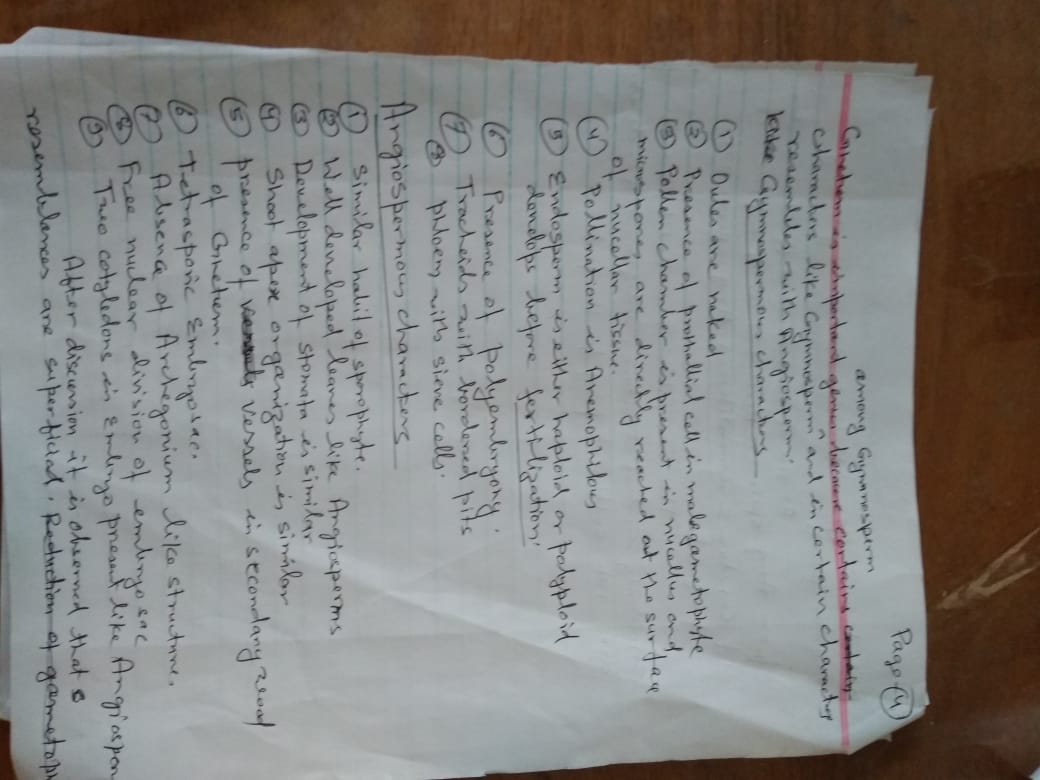 Page-(4)
among Gymnosperm
Gnetum is important genus because contains certain
characters like Gymnosperm and in certain character
resembles with Angiosperm.
Gymnospermous characters
(1) Ovules are naked
(2) Presence of prothallial cell in male gametophyte
(3) Pollen chamber is present in nucellus and
microspores are directly reached at the surface
of nucellar tissue.
(4) Pollination is Anemophilous
(5) Endosperm is either haploid or polyploid
develops before fertilization.
(6) Presence of polyembryony.
(7) Tracheids with bordered pits
(8) phloem with sieve cells.
Angiospermous characters
(1) Similar habit of sporophyte.
(2) Well developed leaves like Angiosperms
(3) Development of stomata is similar
(4) Shoot apex organization is similar
(5) presence of vessels in secondary wood
of Gnetum.
(6) Tetrasporic Embryosac.
(7) Absence of Archegonium like structure.
(8) Free nuclear division of embryo sac
(9) Two cotyledons in Embryo present like Angiosperm
After discussion it is observed that
resemblances are superficial. Reduction of gametoph